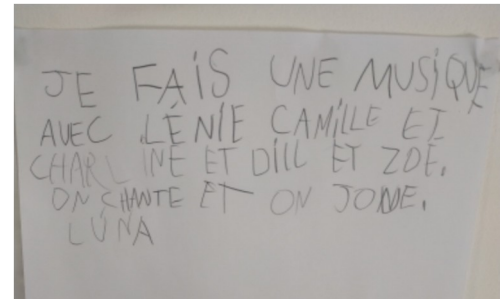 JE FAIS UNE MUSIQUE
AVEC LÉNIE CAMILLE ET
CHARLINE ET DILL ET ZOE.
ON CHANTE ET ON JOUE.
LÚNA